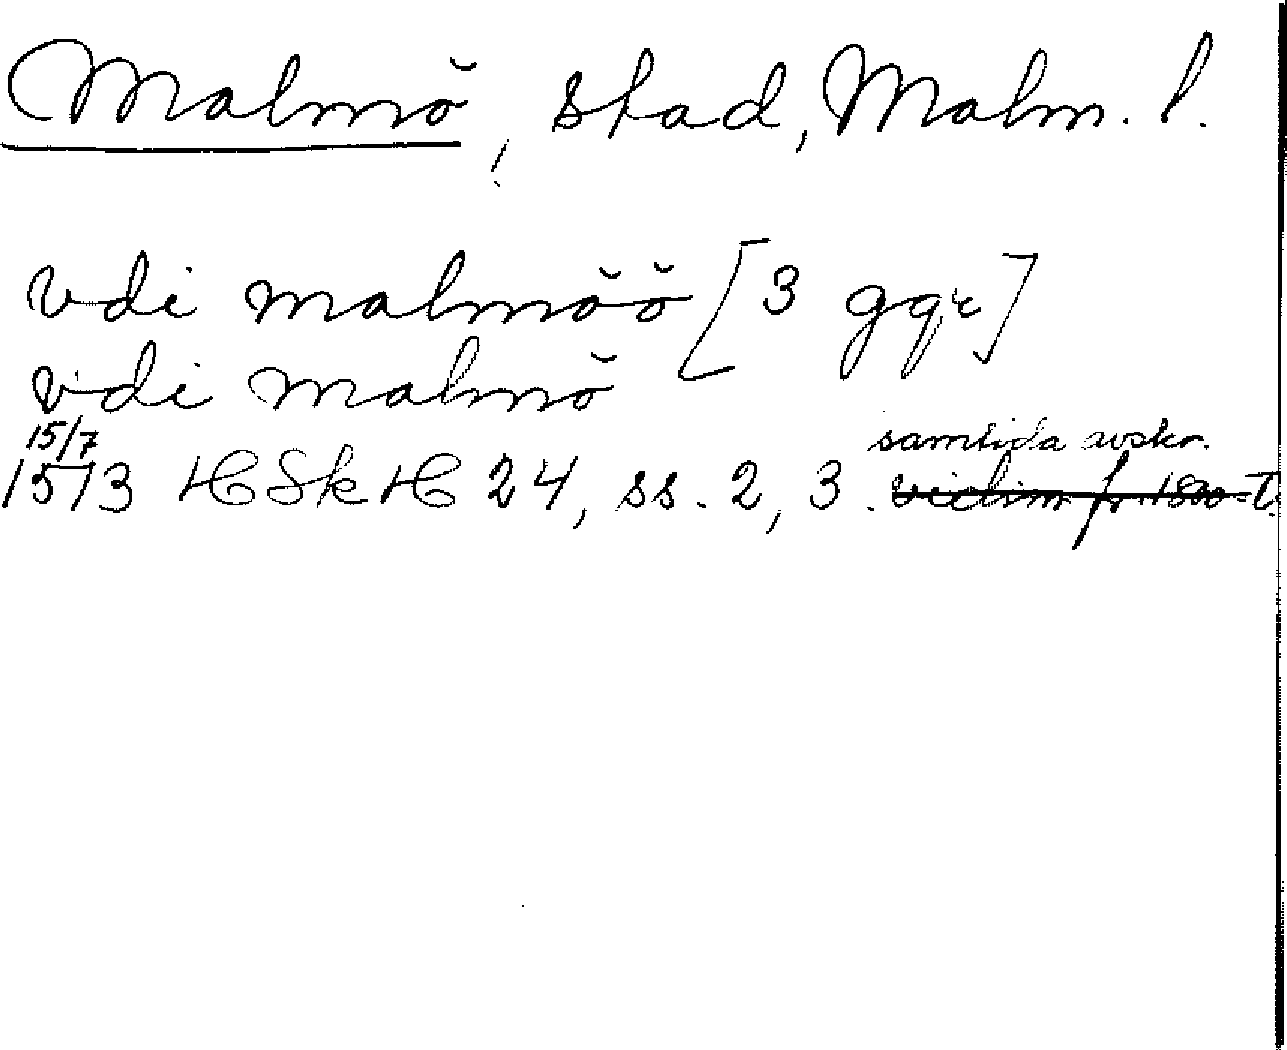 Malmö, stad, Malm. l.
vdi malmöö [3 ggr]
vdi malmö
15/7 samtida avskr.
1573 HSkH 24, ss. 2, 3. vidim fr. 1800-t.